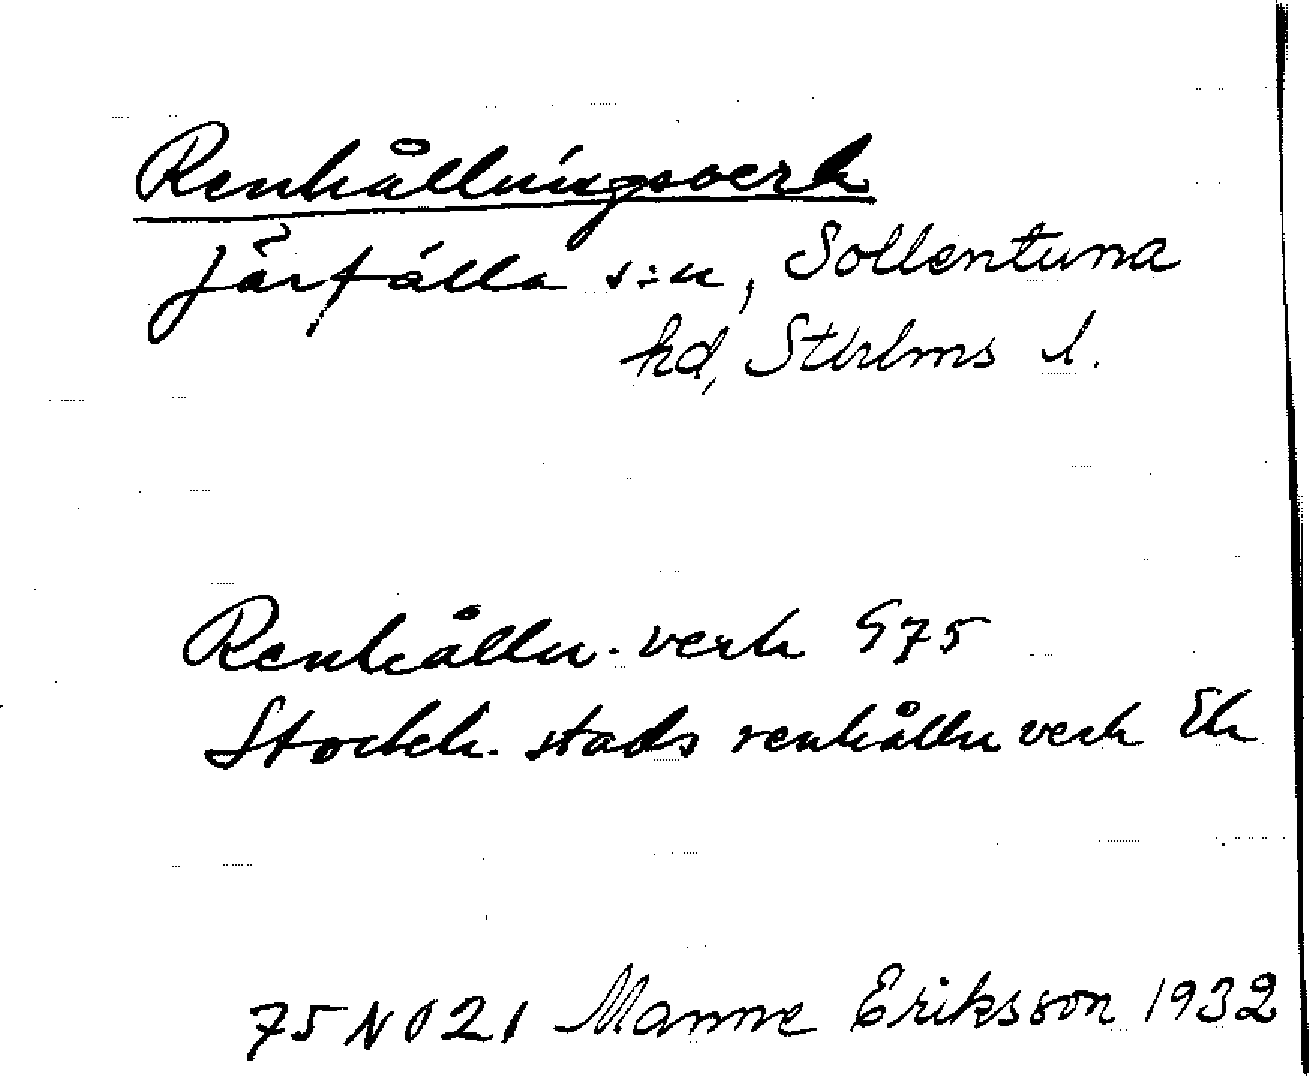 Renhållningsverk
Järfälla s:n, Sollentuna
hd, Sthlms l.
Renhålln. verk G75
Stockh. stads renhålln verk Ek
75 NO 21 Manne Eriksson 1932